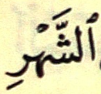 ٱلشَّهْرِ